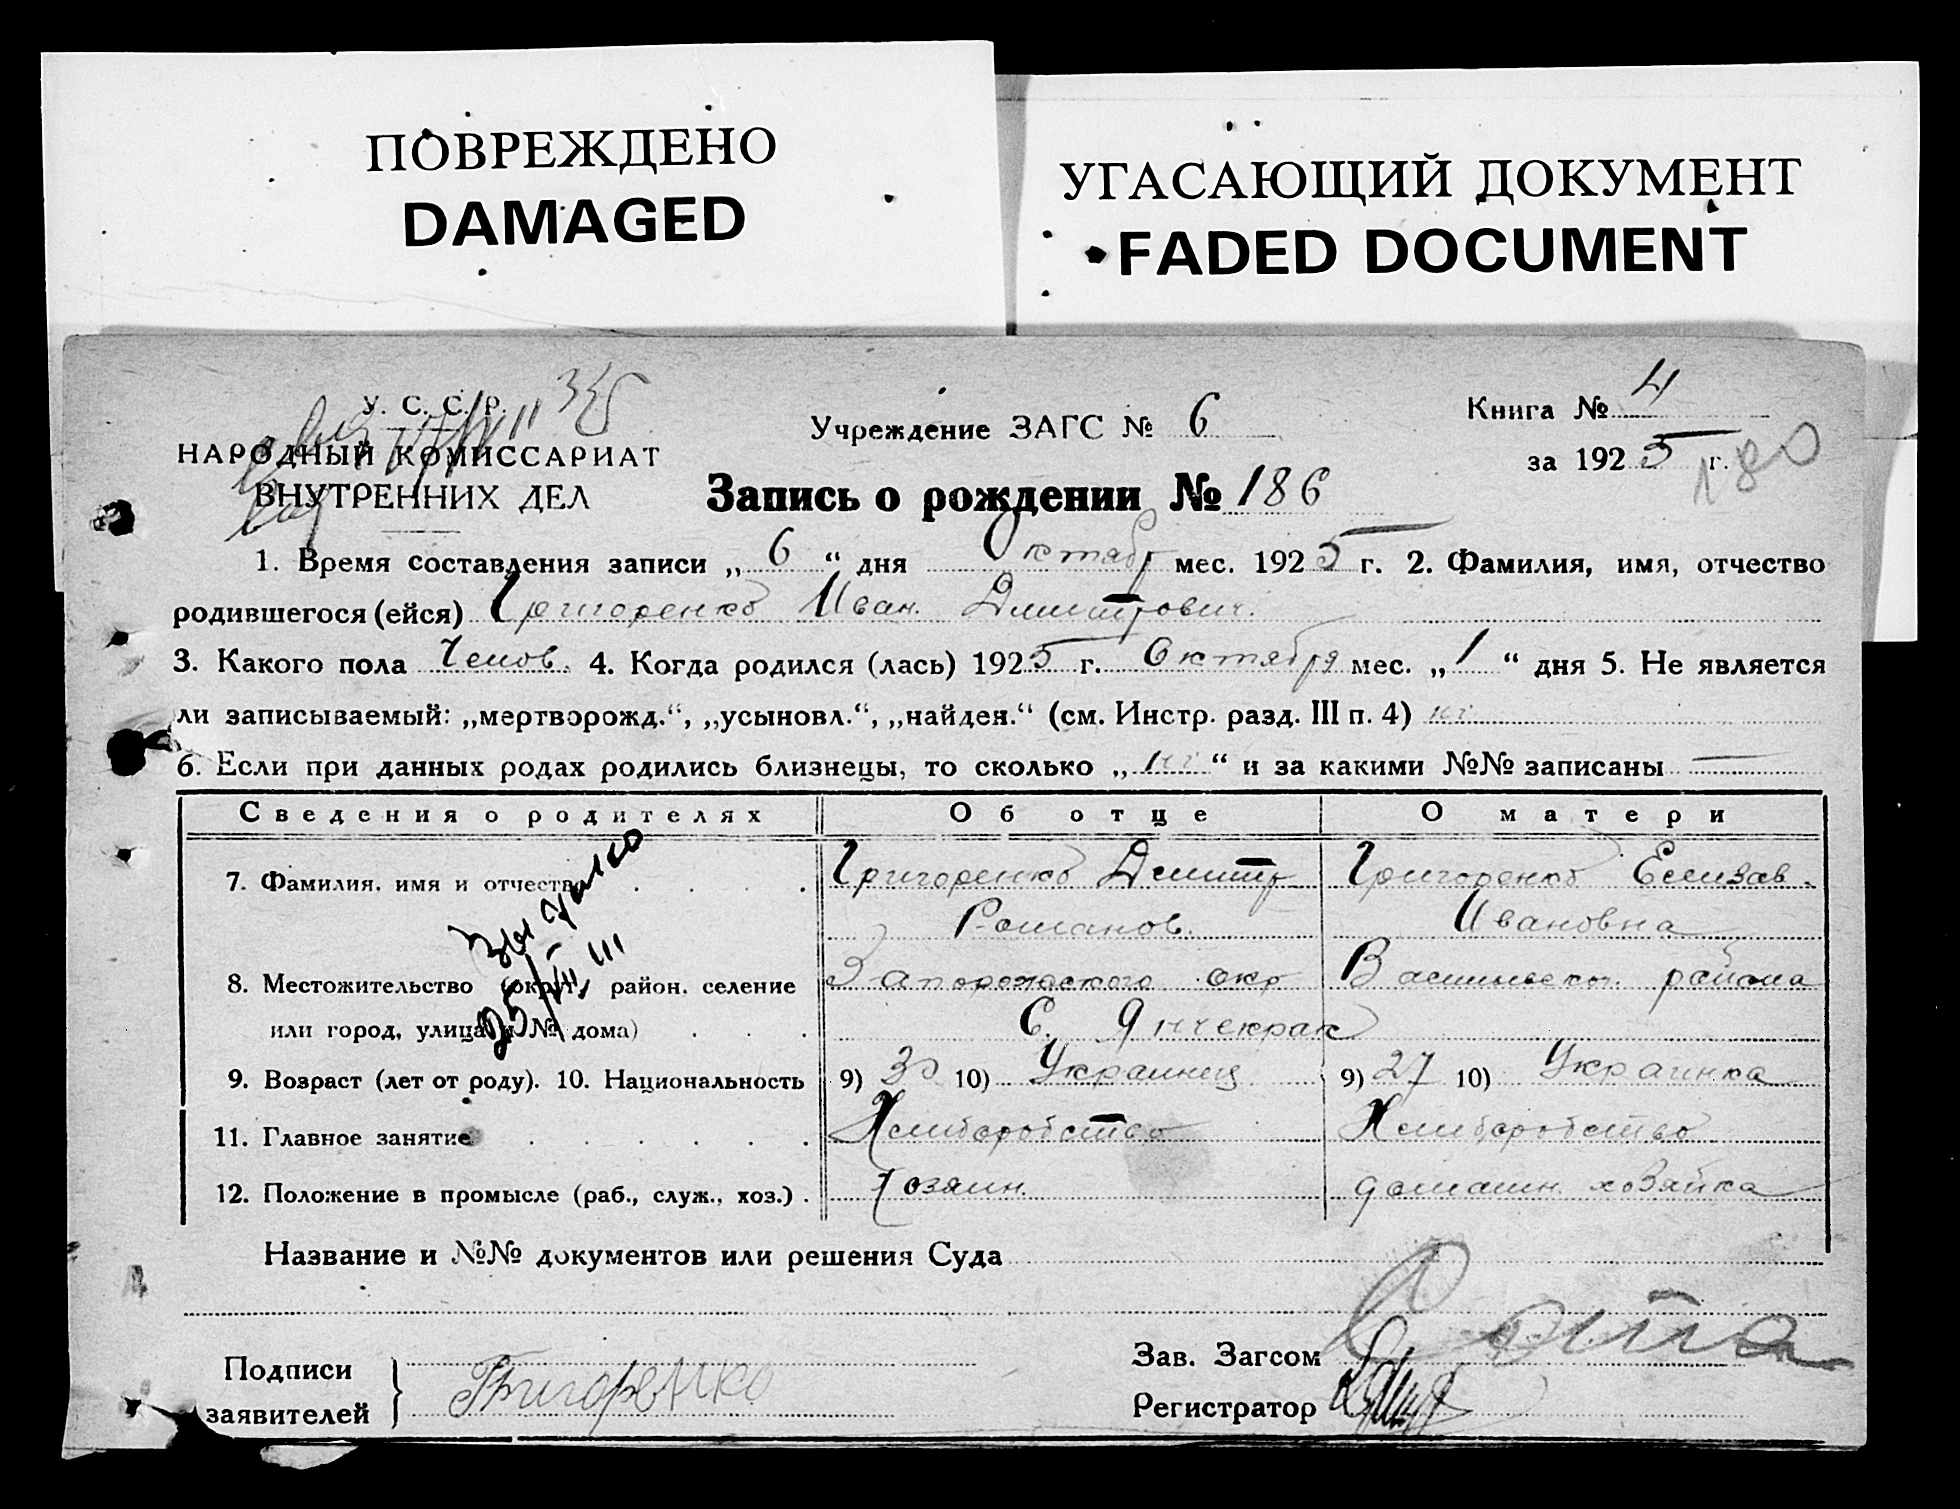 ПОВРЕЖДЕНО
DAMAGED
УГАСАЮЩИЙ ДОКУМЕНТ
FADED DOCUMENT
У. С. С. Р.
НАРОДНЫЙ КОМИССАРИАТ
ВНУТРЕННИХ ДЕЛ
Учреждение ЗАГС № 6
Книга № 4
за 1925 г.
180
Запись о рождении № 186
1. Время составления записи „ 6 “ дня Октябр мес. 1925 г. 2. Фамилия, имя, отчество
родившегося (ейся) Григоренко Иван Дмитрович.
3. Какого пола Чолов. 4. Когда родился (лась) 1925 г. Октября мес. „ 1 “ дня 5. Не является
ли записываемый: „мертворожд.“, „усыновл.“, „найден.“ (см. Инстр. разд. III п. 4) ні
6. Если при данных родах родились близнецы, то сколько „ ні “ и за какими №№ записаны —
Сведения о родителях Об отце О матери
7. Фамилия, имя и отчество Григоренко Дмитр Григоренко Елизав.
Романов. Ивановна
8. Местожительство (округ, район, селение Запорожского окр Васильевског. района
или город, улица и № дома) С. Янчекрак
9. Возраст (лет от роду). 10. Национальность 9) 30 10) Украинец 9) 27 10) Украинка
11. Главное занятие Хлиборобство Хлиборобство
12. Положение в промысле (раб., служ., хоз.) Хозяин. домашн. хозяйка
Название и №№ документов или решения Суда
Подписи
заявителей
Григоренко
Зав. Загсом
Регистратор